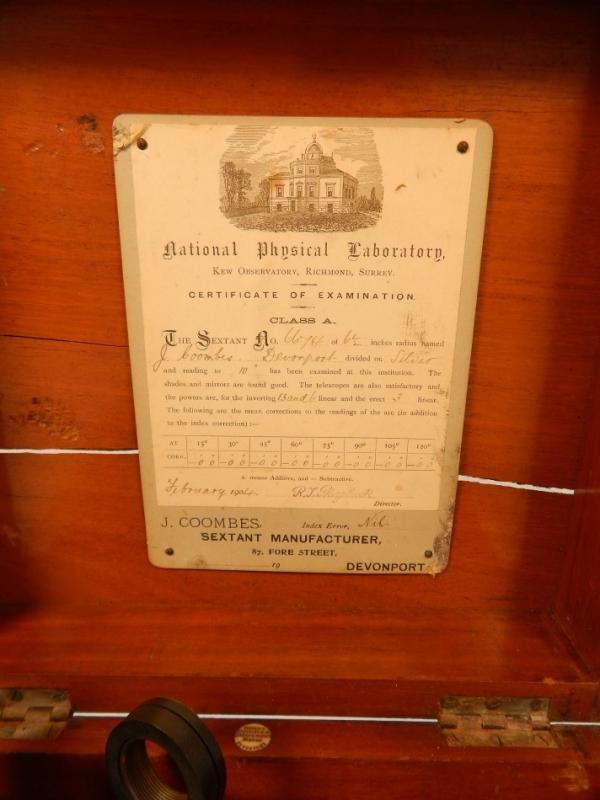 National Physical Laboratory,
KEW OBSERVATORY, RICHMOND, SURREY.
CERTIFICATE OF EXAMINATION.
CLASS A.
THE SEXTANT NO. of inches radius named
J. Coombes. Devonport divided on Silver
and reading to 10" has been examined at this institution. The
shades and mirrors are found good. The telescopes are also satisfactory and
the powers are, for the inverting 13 and 6 linear and the erect 3 linear.
The following are the mean corrections to the readings of the arc (in addition
to the index correction) :—
AT 15° 30° 45° 60° 75° 90° 105° 120°
CORN. -0 0 -0 0 -0 0 -0 0 -0 0 -0 0 -0 0 -0 0
+ means Additive, and − Subtractive.
February 1904.
Director.
J. COOMBES, Index Error, Nil
SEXTANT MANUFACTURER,
87, FORE STREET,
19 DEVONPORT